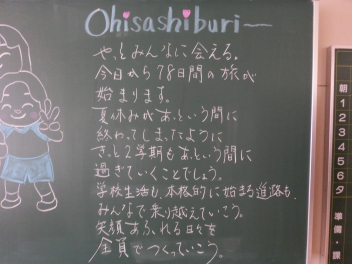 Ohisashiburi〜
やっとみんなに会える。
今日から78日間の旅が
始まります。
夏休みがあっという間に
終わってしまったように
きっと2学期もあっという間に
過ぎていくことでしょう。
学校生活も、本格的に始まる進路も、
みんなで乗り越えていこう。
笑顔あふれる日々を
全員でつくっていこう。
朝
1
2
3
4
5
6
夕
準備・課